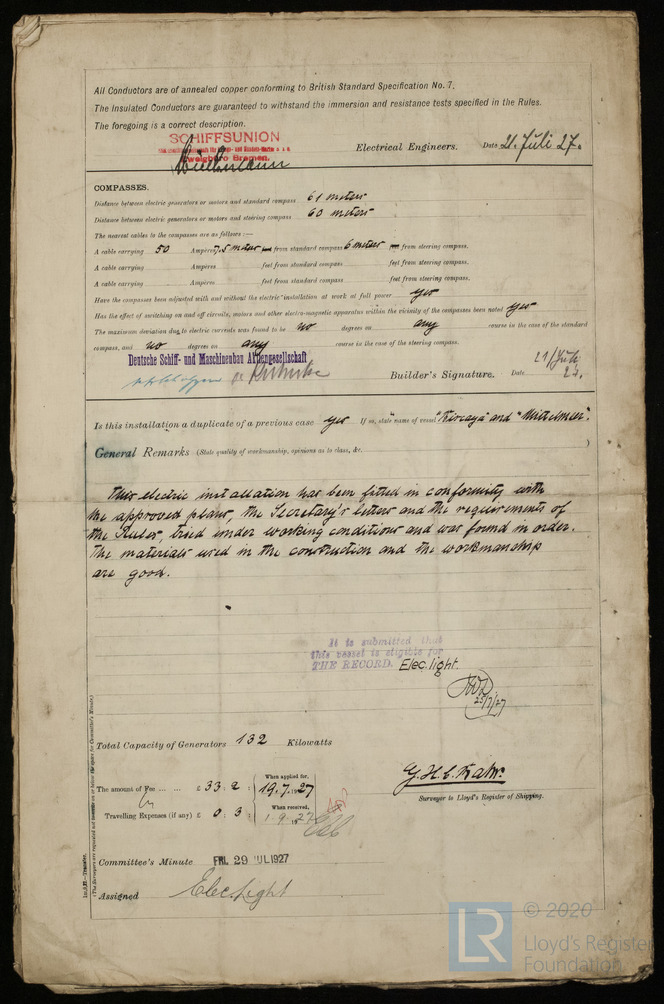 All Conductors are of annealed copper conforming to British Standard Specification No. 7.
The Insulated Conductors are guaranteed to withstand the immersion and resistance tests specified in the Rules.
The foregoing is a correct description.
SCHIFFSUNION
Zweigbüro Bremen.
Electrical Engineers. Date 21. Juli 27.
COMPASSES.
Distance between electric generators or motors and standard compass 61 meters
Distance between electric generators or motors and steering compass 60 meters
The nearest cables to the compasses are as follows:—
A cable carrying 50 Ampères 7,5 meters from standard compass 6 meters from steering compass.
A cable carrying Ampères feet from standard compass feet from steering compass.
A cable carrying Ampères feet from standard compass feet from steering compass.
Have the compasses been adjusted with and without the electric installation at work at full power yes
Has the effect of switching on and off circuits, motors and other electro-magnetic apparatus within the vicinity of the compasses been noted yes
The maximum deviation due to electric currents was found to be no degrees on any course in the case of the standard
compass, and no degrees on any course in the case of the steering compass.
Deutsche Schiff- und Maschinenbau Aktiengesellschaft
Builder's Signature. Date 21/Juli 27.
Is this installation a duplicate of a previous case yes If so, state name of vessel and
General Remarks (State quality of workmanship, opinions as to class, &c. )
This electric installation has been fitted in conformity with
the approved plans, the Secretary's letters and the requirements of
the Rules, tried under working conditions and was found in order.
The materials used in the construction and the workmanship
are good.
It is submitted that
this vessel is eligible for
THE RECORD. Elec. light.
25/7/27
Total Capacity of Generators 132 Kilowatts
The amount of Fee ... ... £ 33 : 2 : When applied for, 19.7.1927
Travelling Expenses (if any) £ 0 : 3 : When received, 1.9.1927
Surveyor to Lloyd's Register of Shipping.
Committee's Minute FRI. 29 JUL 1927
Assigned Elec. Light
(The Surveyors are requested not to write on or below the space for Committee's Minute.)
LR © 2020
Lloyd's Register
Foundation